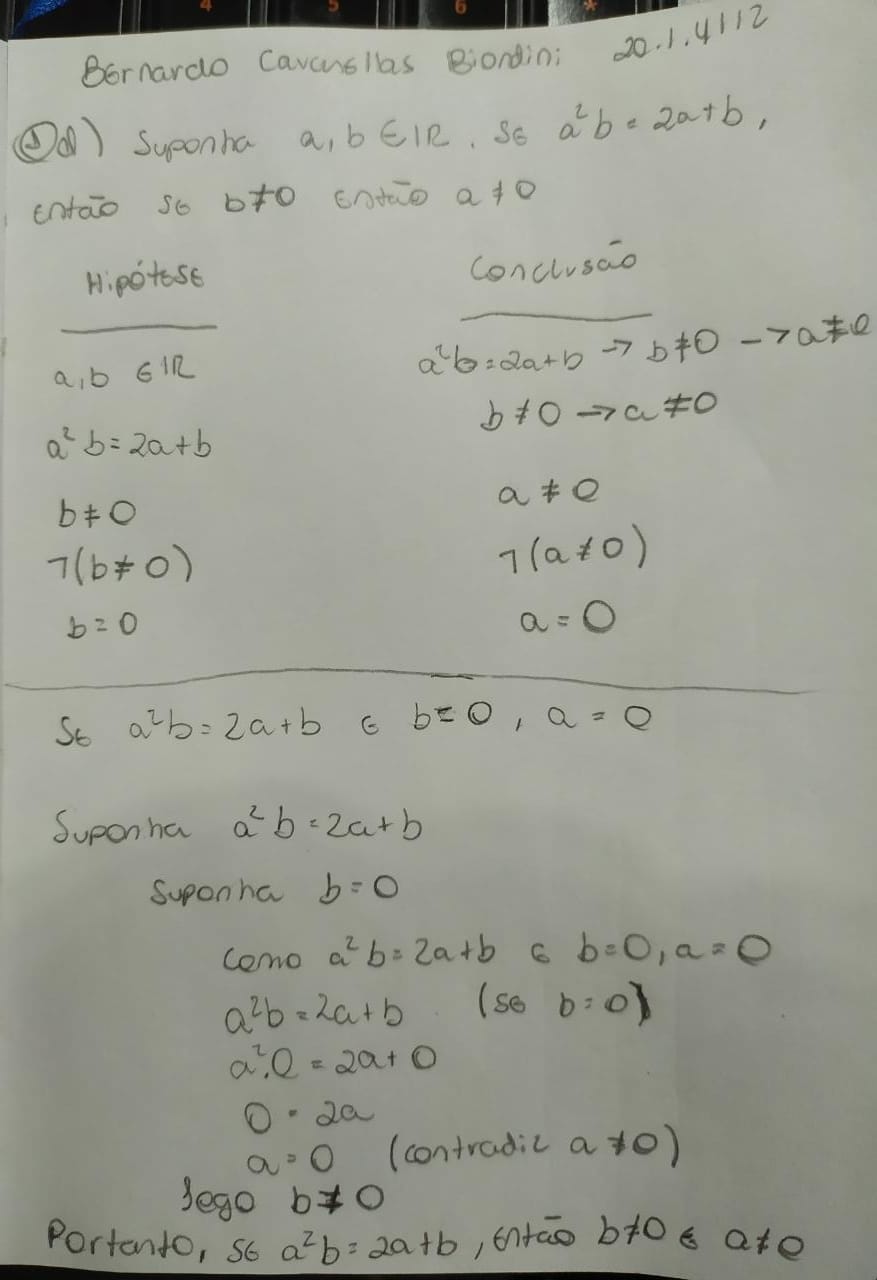 4 5 6 *
Bernardo Cavanellas Biondini 20.1.4112
d) Suponha a, b ∈ IR. Se a²b = 2a+b,
então se b≠0 então a≠0
Hipótese Conclusão
a,b ∈ IR a²b=2a+b → b≠0 → a≠0
a²b=2a+b b≠0 → a≠0
b≠0 a≠0
¬(b≠0) ¬(a≠0)
b=0 a=0
Se a²b=2a+b e b=0, a=0
Suponha a²b=2a+b
Suponha b=0
Como a²b=2a+b e b=0, a=0
a²b=2a+b (se b=0)
a².0=2a+0
0=2a
a=0 (contradiz a≠0)
logo b≠0
Portanto, se a²b=2a+b, então b≠0 e a≠0